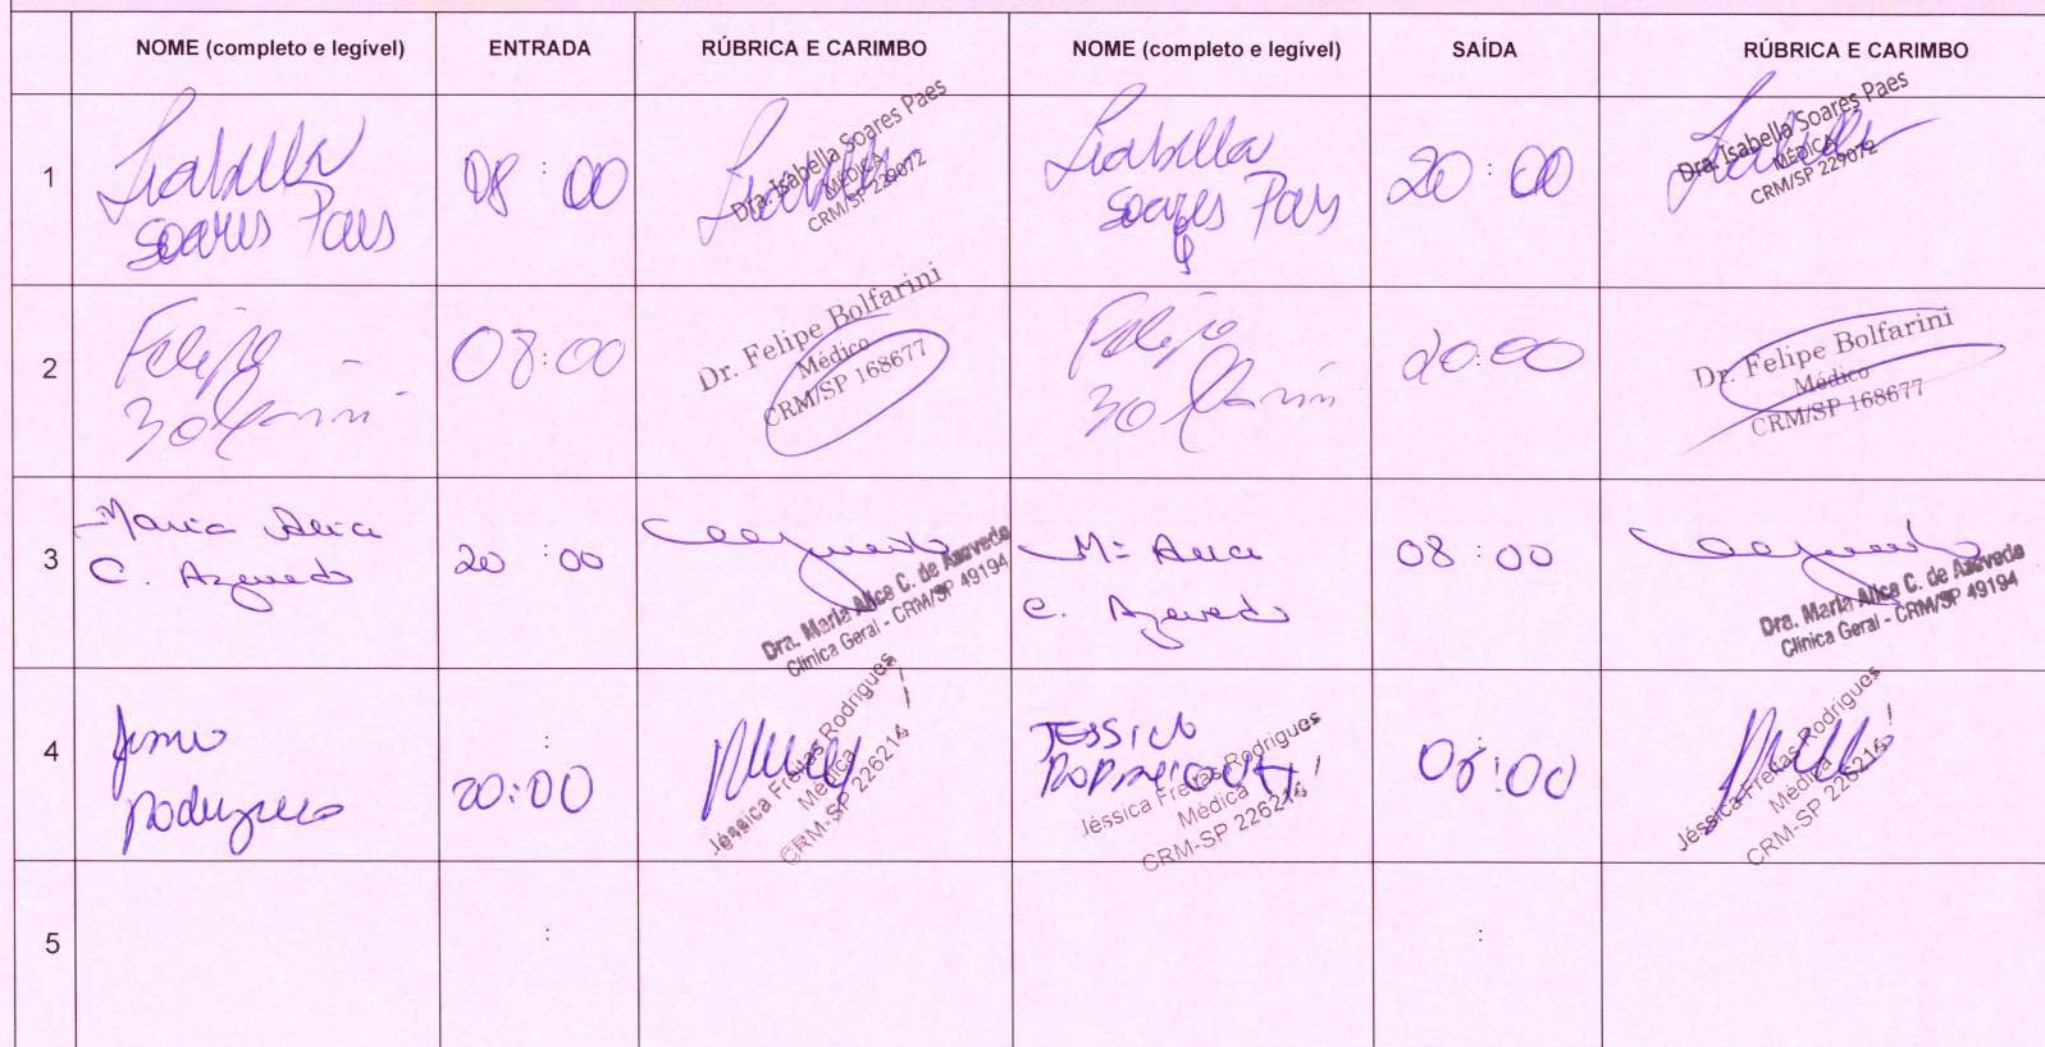 NOME (completo e legível) ENTRADA RÚBRICA E CARIMBO NOME (completo e legível) SAÍDA RÚBRICA E CARIMBO
1
Isabella
Soares Paes
08:00
Dra. Isabella Soares Paes
MÉDICA
CRM/SP 229072
Isabella
Soares Paes
20:00
Dra. Isabella Soares Paes
MÉDICA
CRM/SP 229072
2
Felipe
Bolfarini
08:00
Dr. Felipe Bolfarini
Médico
CRM/SP 168677
Felipe
Bolfarini
20:00
Dr. Felipe Bolfarini
Médico
CRM/SP 168677
3
Maria Alice
C. Azevedo
20:00
Dra. Maria Alice C. de Azevedo
Clínica Geral - CRM/SP 49194
Mª Alice
C. Azevedo
08:00
Dra. Maria Alice C. de Azevedo
Clínica Geral - CRM/SP 49194
4
Rodrigues
20:00
Jéssica Freitas Rodrigues
Médica
CRM-SP 226214
JESSICA
Jéssica Freitas Rodrigues
Médica
CRM-SP 226214
:00
Jéssica Freitas Rodrigues
Médica
CRM-SP 226214
5 : :